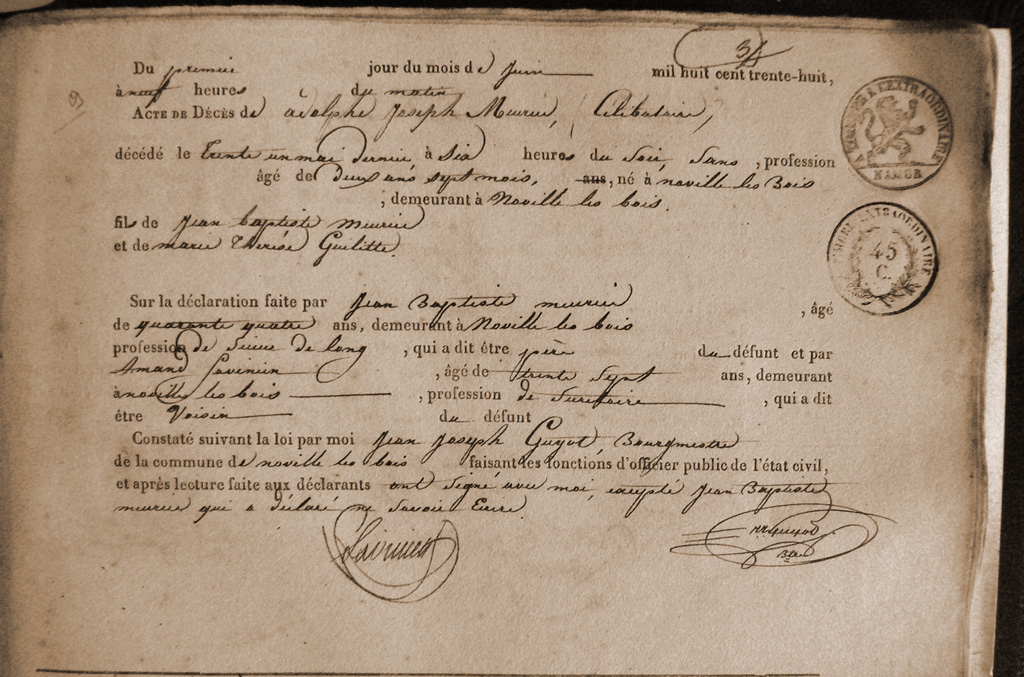 Du premier jour du mois de Juin mil huit cent trente-huit,
à neuf heures du matin
ACTE DE DÉCÈS de adolphe Joseph Meurice, Célibataire,
décédé le trente un mai dernier à Six heures du Soir, Sans, profession
âgé de deux ans sept mois, ans, né à noville les Bois
, demeurant à Noville les bois.
fils de Jean baptiste meurice
et de marie Thérèse Guilitte.
Sur la déclaration faite par Jean Baptiste meurice , âgé
de quarante quatre ans, demeurant à Noville les bois
profession de Scieur de long , qui a dit être père du défunt et par
Amand , âgé de trente Sept ans, demeurant
à noville les bois , profession de , qui a dit
être Voisin du défunt
Constaté suivant la loi par moi Jean Joseph Guyot Bourgmestre
de la commune de noville les bois faisant les fonctions d'officier public de l'état civil,
et après lecture faite aux déclarants ont Signé avec moi, excepté Jean Baptiste
meurice qui a déclaré ne Savoir Ecrire
EXTRAORDINAIRE
NAMUR
EXTRAORDINAIRE
45
C.